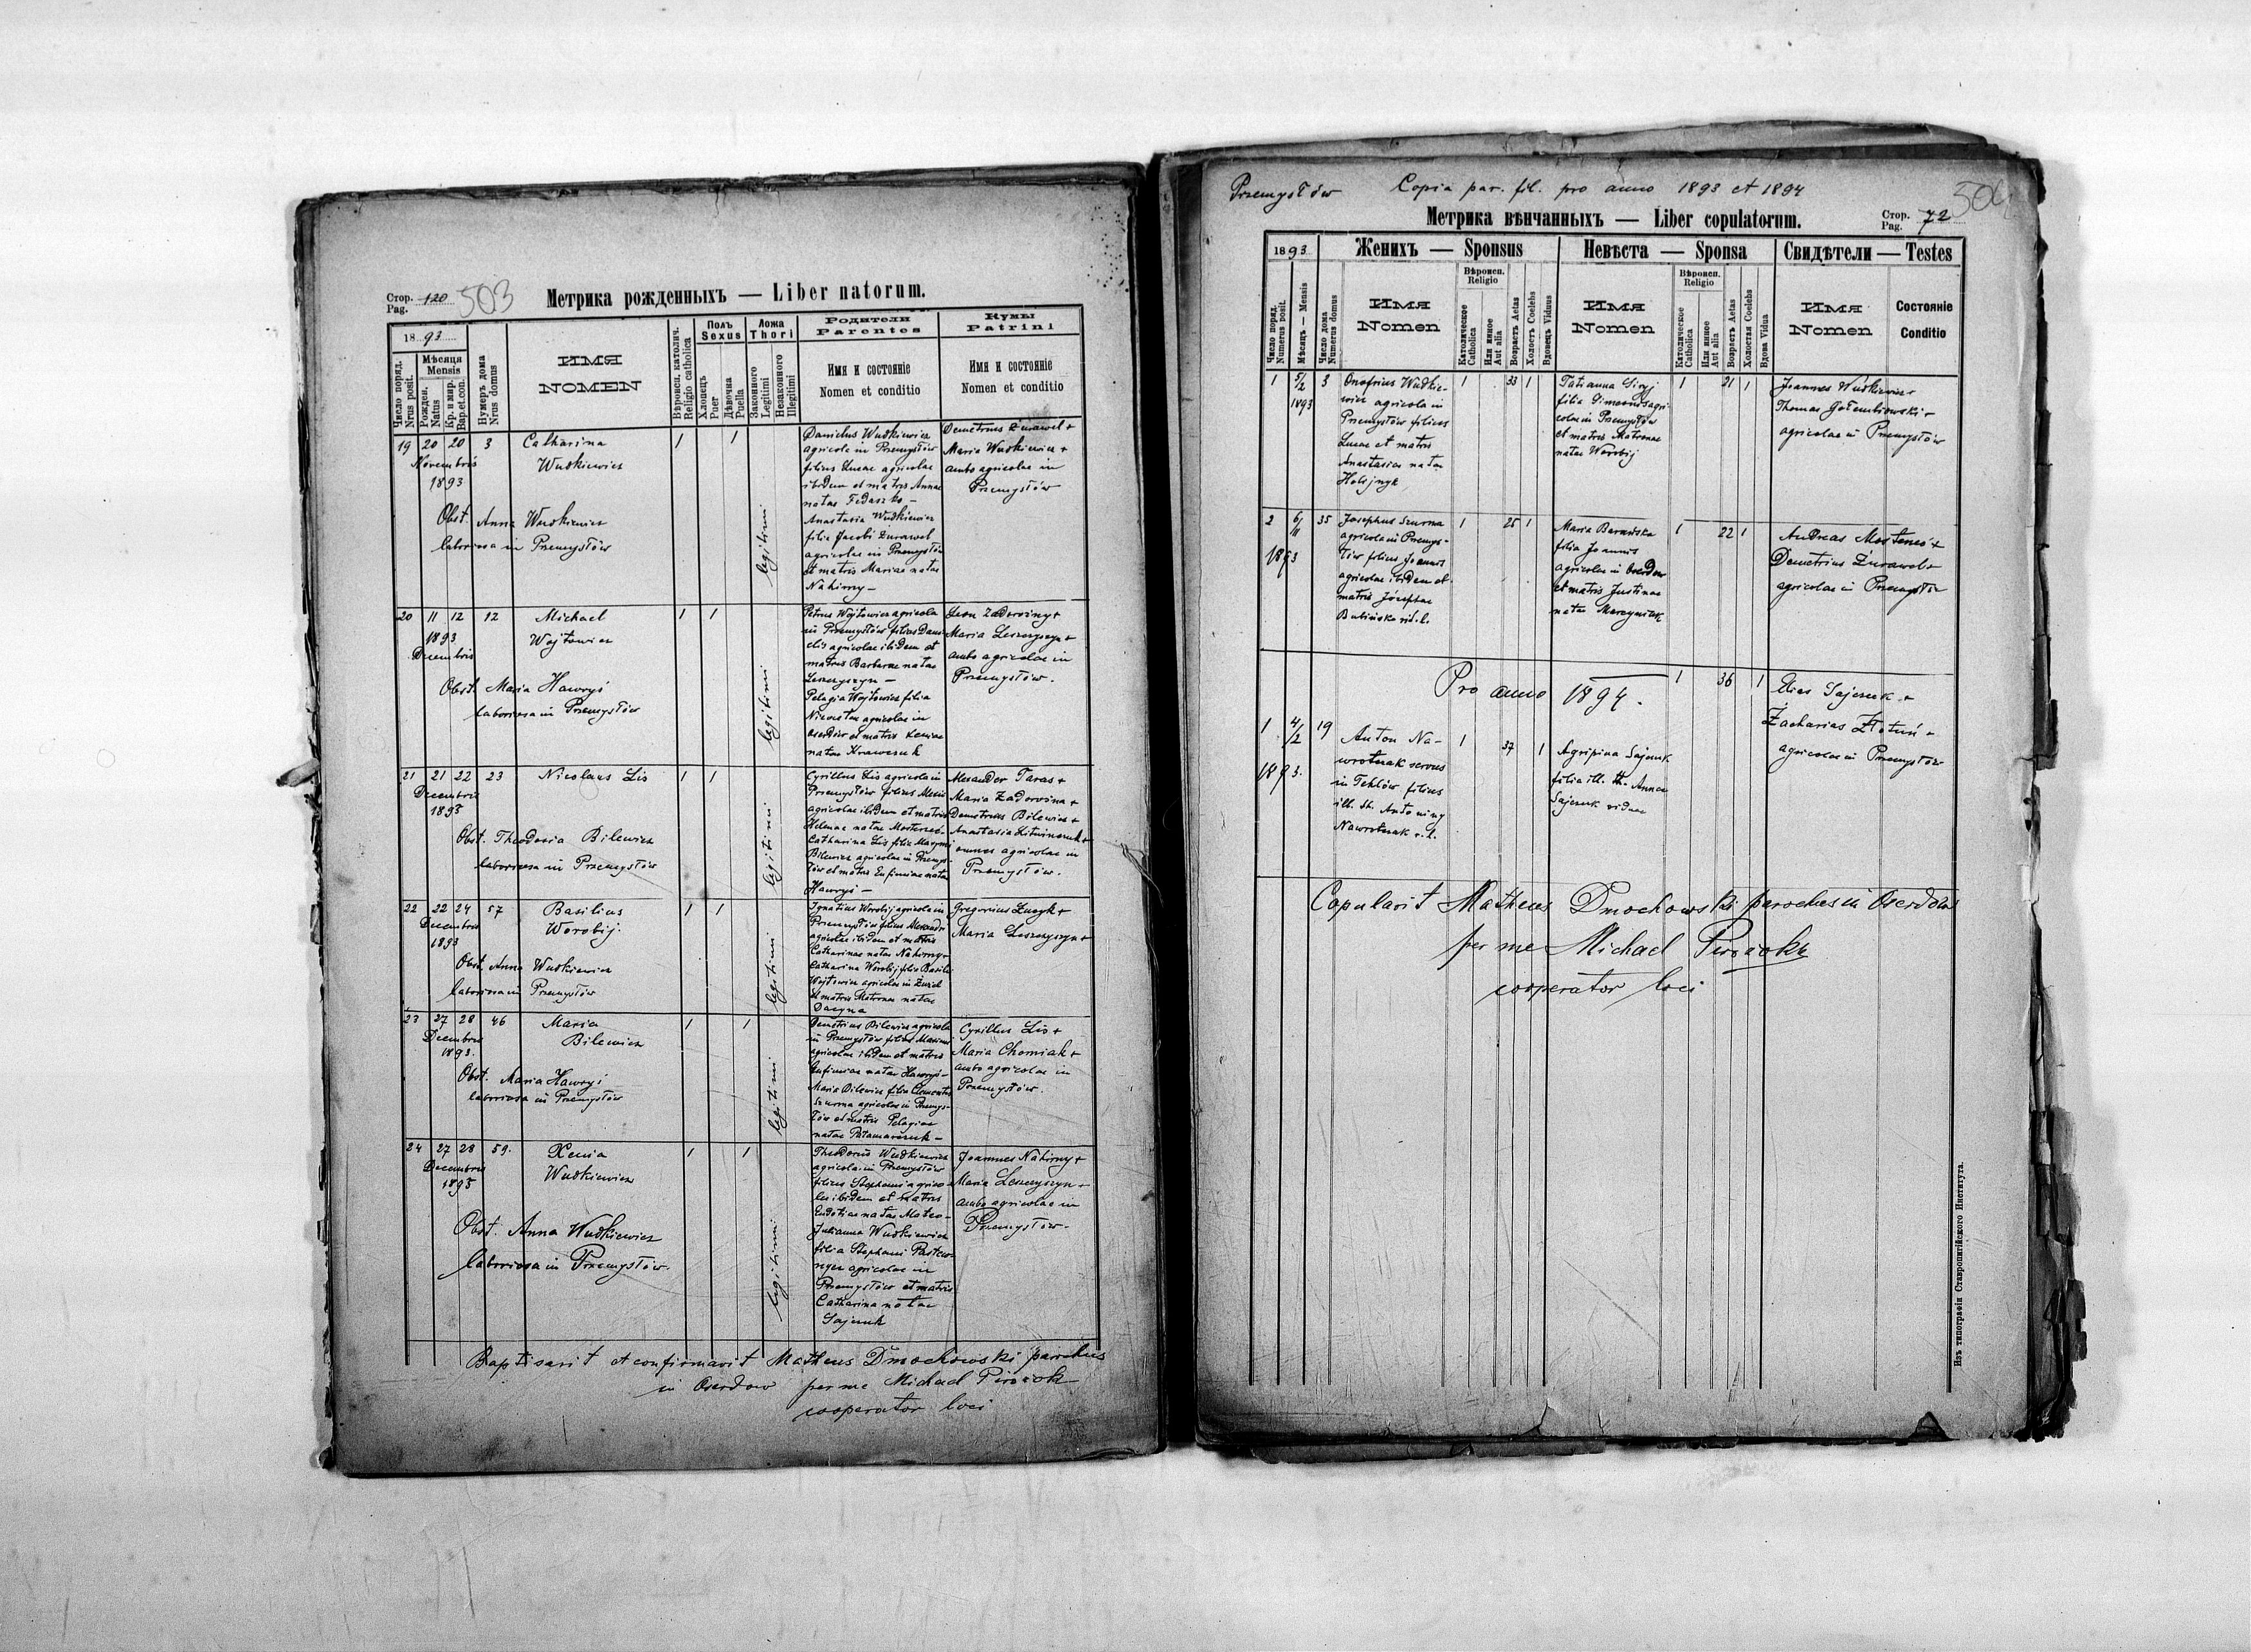 Стор.
Pag. 120 503 Метрика рожденныхъ — Liber natorum.
1893
Число поряд.
Nrus posit.
Мѣсяця
Mensis
Рожден.
Natus
Кр. и мир.
Bap. et con.
Нумеръ дома
Nrus domus
ИМЯ
NOMEN
Вѣроисп. католич.
Religio catholica
Полъ
Sexus
Хлопецъ
Puer
Дѣвочка
Puella
Ложа
Thori
Законного
Legitimi
Незаконного
Illegitimi
Родители
Parentes
Имя и состоянie
Nomen et conditio
Кумы
Patrini
Имя и состоянie
Nomen et conditio
19 20 20 3 Catharina 1 1
Novembris Wudkiewicz
1893
Obst. Anna Wudkiewicz
laboriosa in Przemysłów
legitimi
Danielus Wudkiewicz
agricola in Przemysłów
filius Lucae agricolae
ibidem et matris Annae
natae Fedaszko —
Anastasia Wudkiewicz
filia Jacobi Żurawel
agricolae in Przemysłów
et matris Mariae natae
Nahirny —
Demetrius Żurawel +
Maria Wudkiewicz +
ambo agricolae in
Przemysłów
20 11 12 12 Michael 1 1
1893 Wojtowicz
Decembris
Obst. Maria Hawryś
laboriosa in Przemysłów
legitimi
Petrus Wojtowicz agricola
in Przemysłów filius Dani-
elis agricolae ibidem et
matris Barbarae natae
Leszczyszyn —
Pelagia Wojtowicz filia
agricolae in
Oserdów et matris Xeniae
natae Krawczuk
Leon Zadorożny +
Maria Leszczyszyn +
ambo agricolae in
Przemysłów.
21 21 22 23 Nicolaus Lis 1 1
Decembris
1893
Obst. Theodosia Bilewicz
laboriosa in Przemysłów
legitimi
Cyrillus Lis agricola in
Przemysłów filius Alexii
agricolae ibidem et matris
Helenae natae
Catharina Lis filia Maxymi
Bilewicz agricolae in Przemys-
łów et matris Eufimiae natae
Hawryś —
Alexander Taras +
Maria Zadorożna +
Demetrius Bilewicz +
Anastasia Litwinczuk +
omnes agricolae in
Przemysłów.
22 22 24 57 Basilius 1 1
Decembris Worobij.
1893
Obst. Anna Wudkiewicz
laboriosa in Przemysłów
legitimi
Ignatius Worobij agricola in
Przemysłów filius Alexandri
agricolae ibidem et matris
Catharinae natae Nahirny +
Catharina Worobij filia Basilii
Wojtowicz agricolae in Żużel
et matris Matronae natae
Gregorius Łucyk +
Maria Leszczyszyn +
23 27 28 46 Maria 1 1
Decembris Bilewicz
1893.
Obst. Maria Hawryś
laboriosa in Przemysłów
legitimi
Demetrius Bilewicz agricola
in Przemysłów filius Maximi
agricolae ibidem et matris
Eufimiae natae Hawryś —
Maria Bilewicz filia Clementis
Szurma agricolae in Przemys-
łów et matris Pelagiae
natae
Cyrillus Lis +
Maria Chomiak +
ambo agricolae in
Przemysłów.
24 27 28 59. Xenia 1 1
Decembris Wudkiewicz
1893
Obst. Anna Wudkiewicz
laboriosa in Przemysłów.
legitimi
Theodorus Wudkiewicz
agricola in Przemysłów
filius Stephani agrico-
lae ibidem et matris
Eudotiae natae
Julianna Wudkiewicz
filia Stephani
agricolae in
Przemysłów et matris
Catharina natae
Sajczuk
Joannes Nahirny +
Maria Leszczyszyn +
ambo agricolae in
Przemysłów.
Baptisavit et confirmavit Matheus Dmochowski parochus
in Oserdow per me Michael Pirożok
cooperator loci
Przemysłów Copia par. fil. pro anno 1893 et 1894 504
Метрика вѣнчанныхъ — Liber copulatorum.
Стор.
Pag. 72
1893
Число поряд.
Numerus posit.
Мѣсяцъ — Mensis
Число дома
Numerus domus
Женихъ — Sponsus
ИМЯ
Nomen
Вѣроисп.
Religio
Католическое
Catholica
Или инное
Aut alia
Возрастъ Aetas
Холостъ Coelebs
Вдовецъ Viduus
Невѣста — Sponsa
ИМЯ
Nomen
Вѣроисп.
Religio
Католическое
Catholica
Или инное
Aut alia
Возрастъ Aetas
Холостая Coelebs
Вдова Vidua
Свидѣтели — Testes
ИМЯ
Nomen
Состоянie
Conditio
1 5/2 3 Onofrius Wudkie- 1 33 1
1893 wicz agricola in
Przemysłów filius
Lucae et matris
Anastasiae natae
Holejnyk
Tatianna Siryj 1 21 1
filia Simeonis agri-
colae in Przemysłów
et matris Matronae
natae Worobij
Joannes Wudkiewicz +
Thomas Gołembiowski +
agricolae in Przemysłów
2 6/11 35 Josephus Szurma 1 25 1
1893 agricola in Przemys-
łów filius Joannis
agricolae ibidem et
matris Josephae
Maria Barańska 1 22 1
filia Joannis
agricolae in Oserdow
et matris Justinae
natae
Andreas +
Demetrius Żurawel +
agricolae in Przemysłów
Pro anno 1894.
1 4/2 19 Anton Na- 1 37 1
1893. wrotczak servus
in Tehlów filius
ill. th. Antoniny
Nawrotczak r. l.
Agripina Sajczuk 1 36 1
filia ill. th. Annae
Sajczuk vidua
Elias Sajczuk +
Zacharias +
agricolae in Przemysłów
Copulavit Matheus Dmochowski parochus in Oserdow
per me Michael Pirożok
cooperator loci
Изъ типографіи Ставропигійского Института.